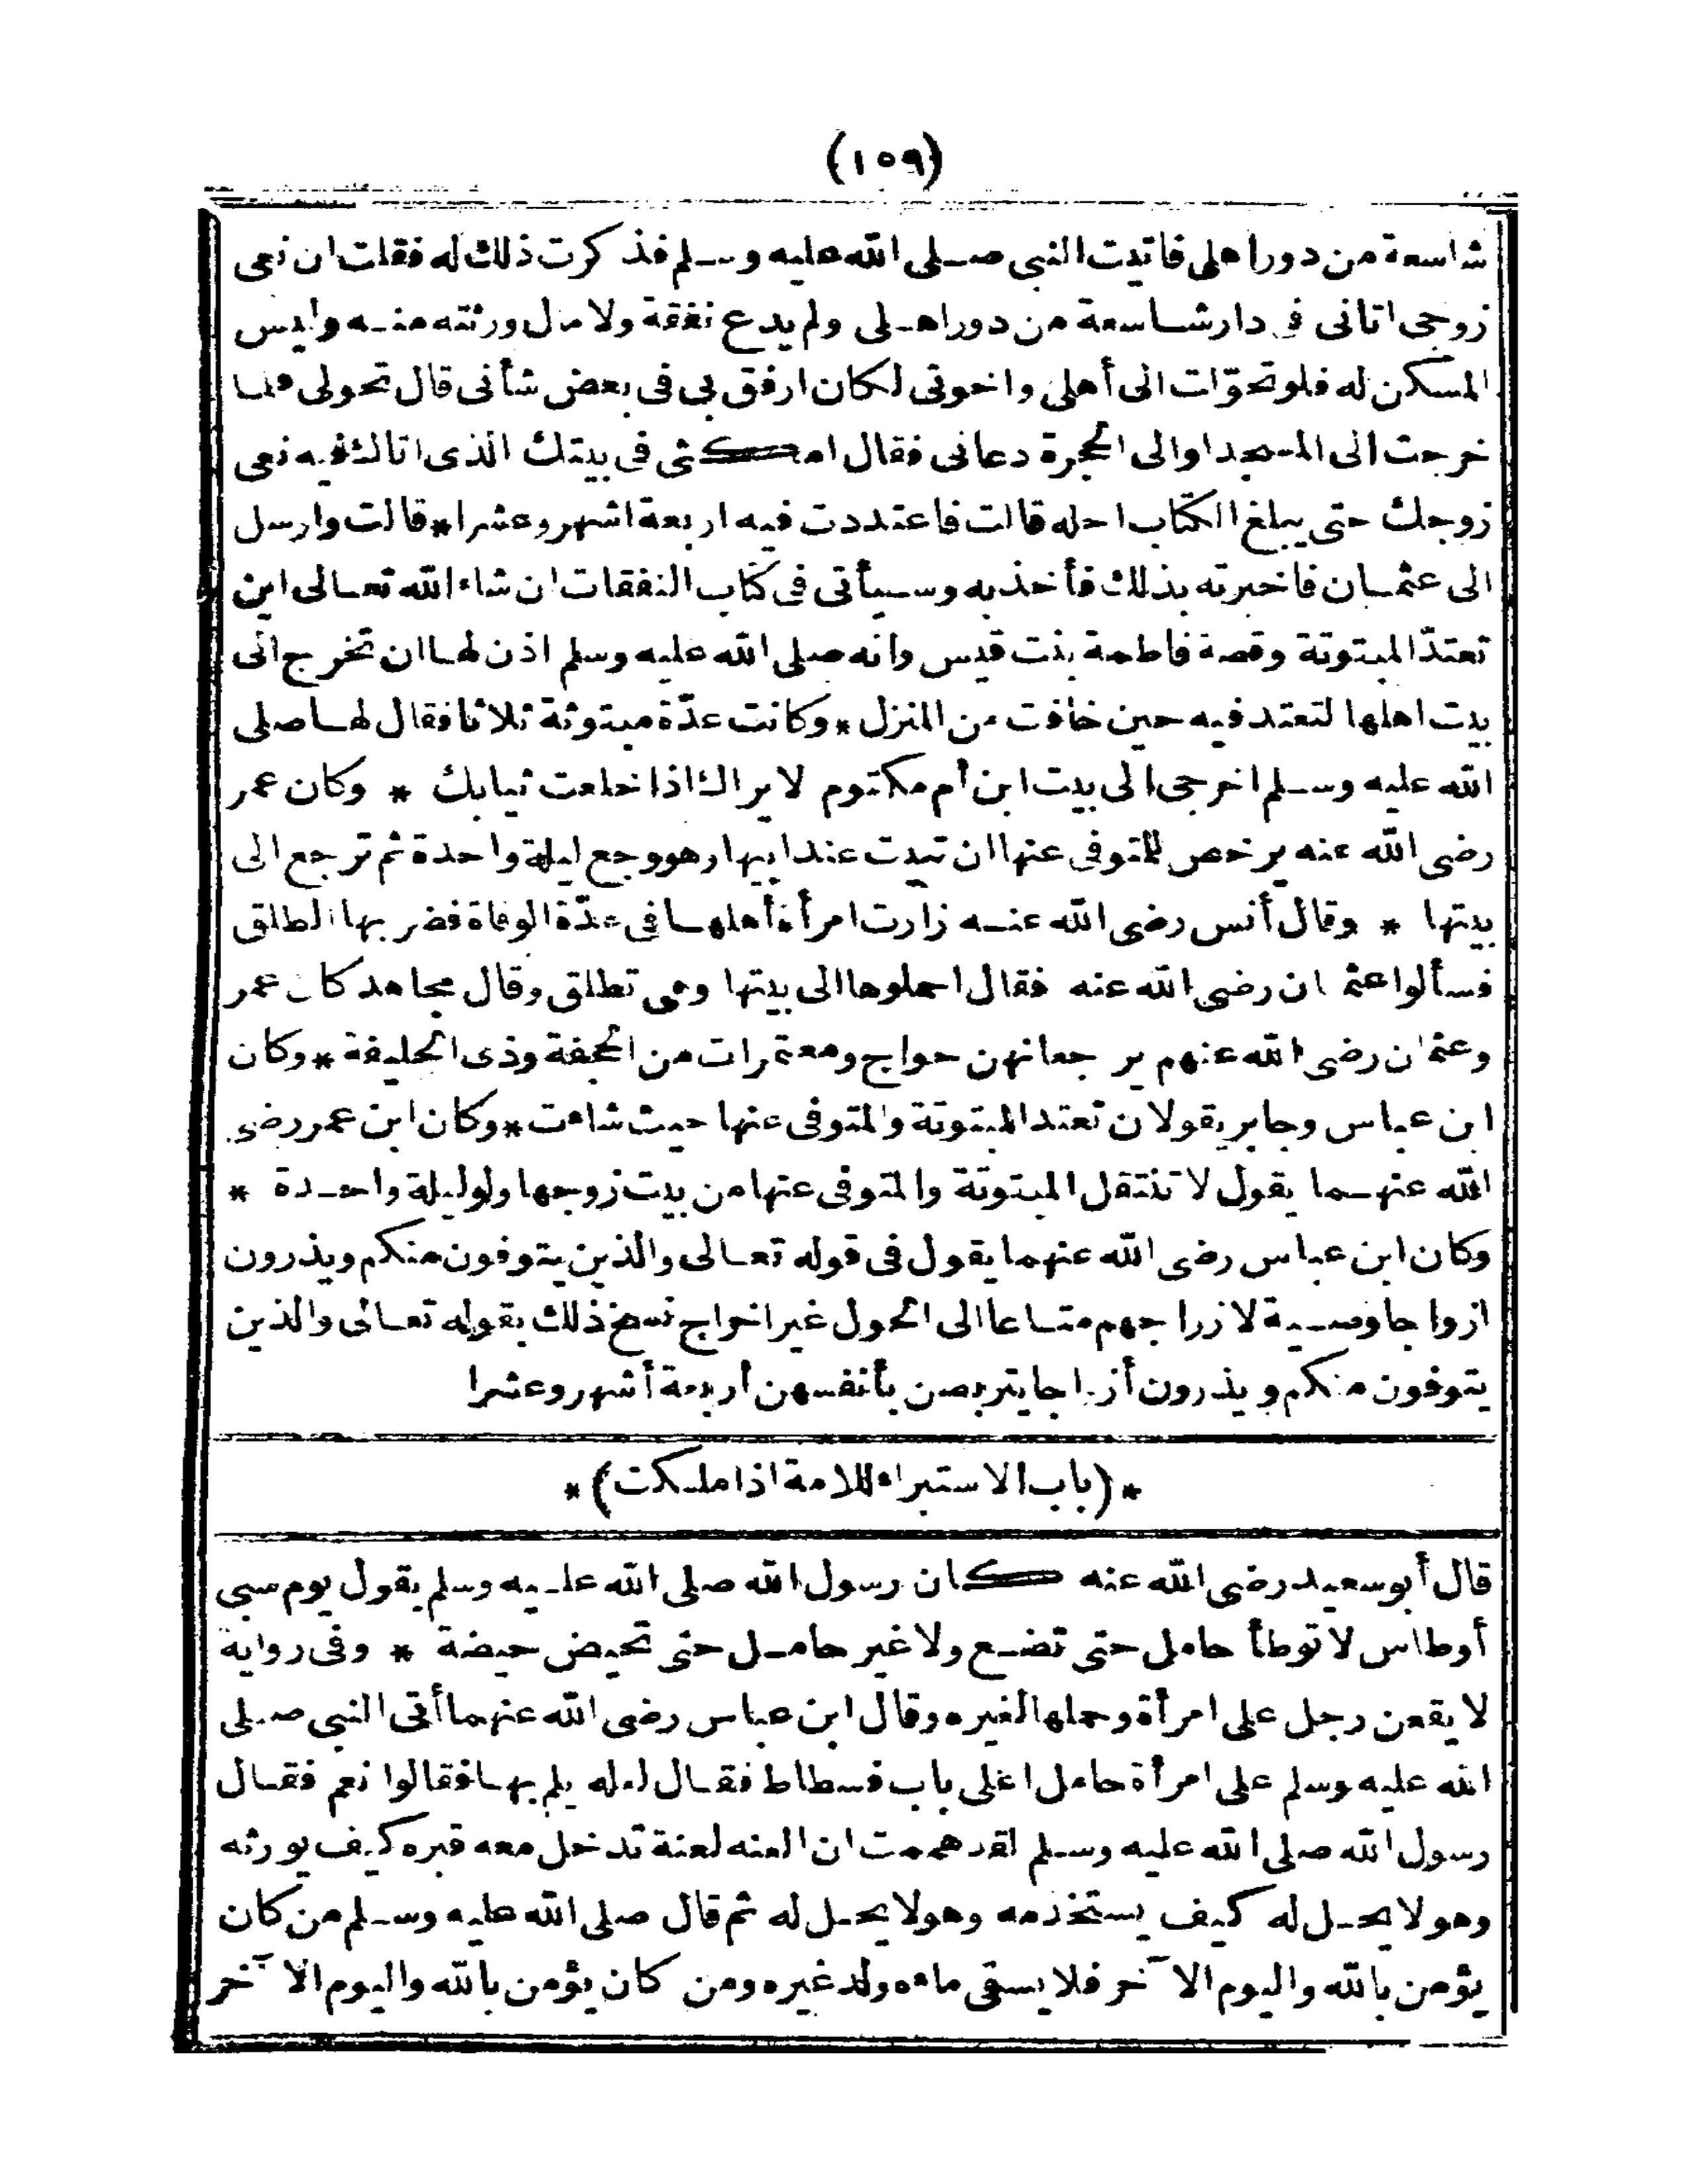 (١٥٩)
شاسعة من دور اهلى فاتيت النبى صلى الله عليه وسلم فذكرت ذلك له فقلت ان نعى
زوجى اتانى فى دار شاسعة من دور اهلى ولم يدع نفقة ولا مال ورثته منه وليس
المسكن له فلو تحوّلت الى أهلى واخوتى لكان ارفق بى فى بعض شأنى قال تحولى فلما
خرجت الى المسجد او الى الحجرة دعانى فقال امكثى فى بيتك الذى اتاك فيه نعى
زوجك حتى يبلغ الكتاب اجله قالت فاعتددت فيه اربعة اشهر وعشرا * قالت وارسل
الى عثمان فاخبرته بذلك فأخذ به وسيأتى فى كتاب النفقات ان شاء الله تعالى اين
تعتدّ المبتوتة وقصة فاطمة بنت قيس وانه صلى الله عليه وسلم اذن لها ان تخرج الى
بيت اهلها لتعتد فيه حين خافت من المنزل * وكانت عدّة مبتوتة ثلاثا فقال لها صلى
الله عليه وسلم اخرجى الى بيت ابن أم مكتوم لا يراك اذا خلعت ثيابك * وكان عمر
رضى الله عنه يرخص للمتوفى عنها ان تبيت عند ابيها وهو وجع ليلة واحدة ثم ترجع الى
بيتها * وقال أنس رضى الله عنه زارت امرأة أهلها فى عدّة الوفاة فضربها الطلق
فسألوا عثمان رضى الله عنه فقال احملوها الى بيتها وهى تطلق وقال مجاهد كان عمر
وعثمان رضى الله عنهم يرجعانهن حواج ومعتمرات من الجحفة وذى الحليفة * وكان
ابن عباس وجابر يقولان تعتد المبتوتة والمتوفى عنها حيث شاءت * وكان ابن عمر رضى
الله عنهما يقول لا تنتقل المبتوتة والمتوفى عنها من بيت زوجها ولو ليلة واحدة *
وكان ابن عباس رضى الله عنهما يقول فى قوله تعالى والذين يتوفون منكم ويذرون
ازواجا وصية لازواجهم متاعا الى الحول غير اخراج نسخ ذلك بقوله تعالى والذين
يتوفون منكم ويذرون أزواجا يتربصن بأنفسهن أربعة أشهر وعشرا
* (باب الاستبراء للامة اذا ملكت) *
قال أبو سعيد رضى الله عنه كان رسول الله صلى الله عليه وسلم يقول يوم سبى
أوطاس لا توطأ حامل حتى تضع ولا غير حامل حتى تحيض حيضة * وفى رواية
لا يقعن رجل على امرأة وحملها لغيره وقال ابن عباس رضى الله عنهما أتى النبى صلى
الله عليه وسلم على امرأة حامل اعلى باب فسطاط فقال لعله يلم بها فقالوا نعم فقال
رسول الله صلى الله عليه وسلم لقد هممت ان العنه لعنة تدخل معه قبره كيف يورثه
وهو لا يحل له كيف يستخدمه وهو لا يحل له ثم قال صلى الله عليه وسلم من كان
يؤمن بالله واليوم الآخر فلا يسقى ماءه ولد غيره ومن كان يؤمن بالله واليوم الآخر